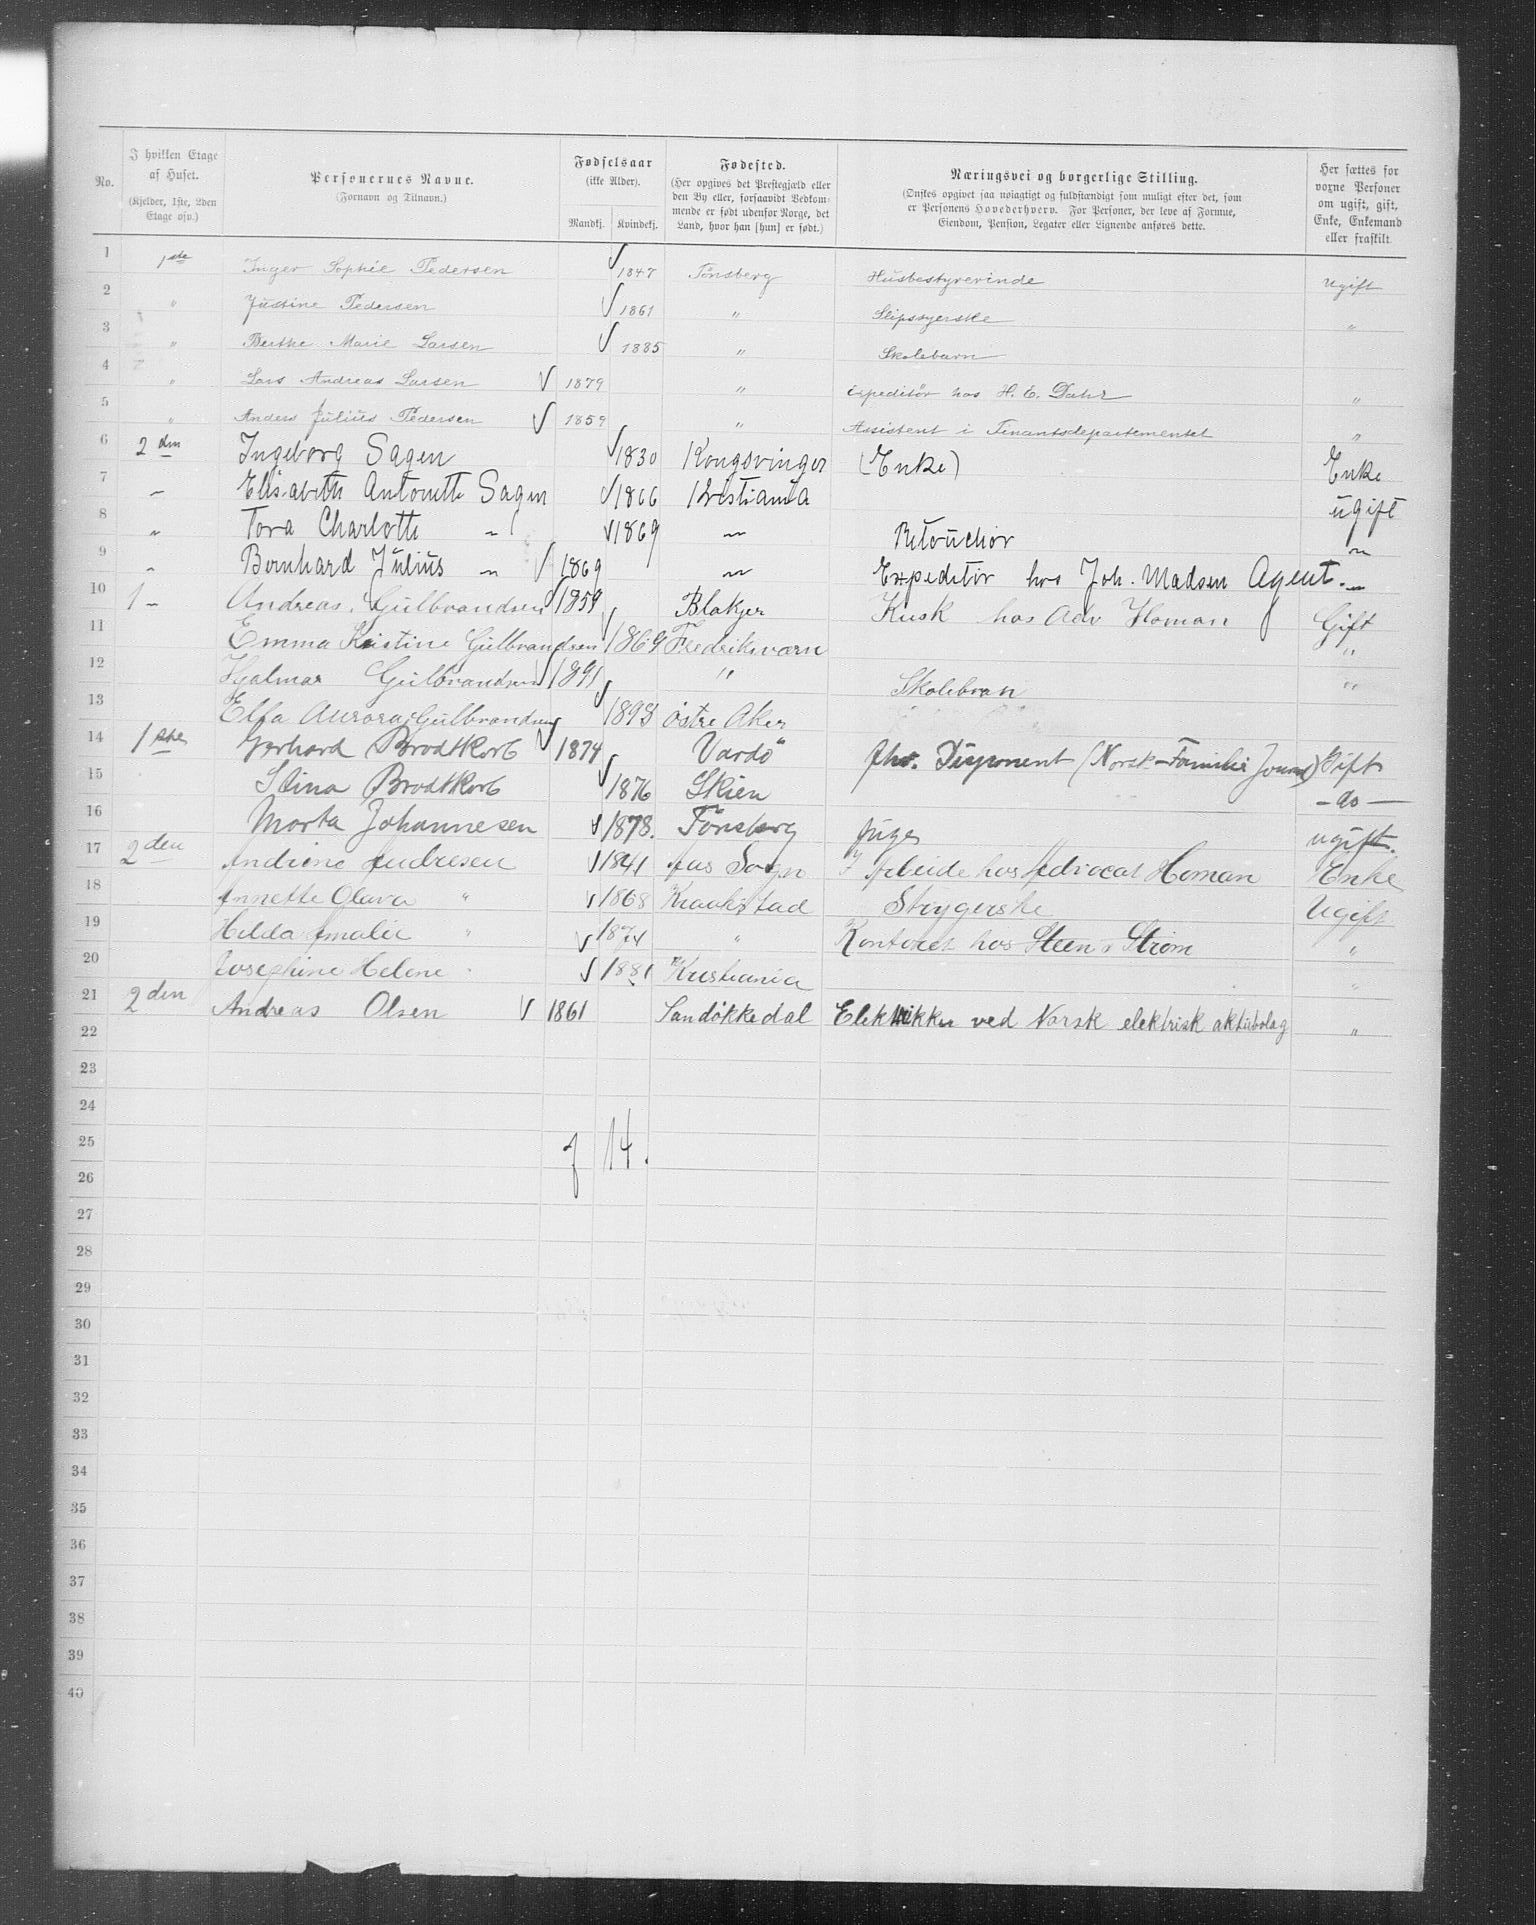 No. | I hvilken Etage af Huset. (Kjelder, 1ste, 2den Etage osv.) | Personernes Navne. (Fornavn og Tilnavn.) | Fødselsaar (ikke Alder). Mandkj. Kvindekj. | Fødested. (Her opgives det Prestegjæld eller den By eller, forsaavidt Vedkommende er født udenfor Norge, det Land, hvor han [hun] er født.) | Næringsvei og borgerlige Stilling. (Ønskes opgivet saa nøiagtigt og fuldstændigt som muligt efter det, som er Personens Hovederhverv. For Personer, der leve af Formue, Eiendom, Pension, Legater eller Lignende anføres dette. | Her sættes for voxne Personer om ugift, gift, Enke, Enkemand eller fraskilt.
1 1ste Inger Sophie Pedersen √ 1847 Tønsberg Husbestyrerinde Ugift
2 " Justine Pedersen √ 1861 " Slipssyerske "
3 " Berthe Marie Larsen √ 1885 " Skolebarn
4 " Lars Andreas Larsen √ 1879 " Expeditør hos H. E. Dahr "
5 " Anders Julius Pedersen √ 1859 " Assistent i Finantsdepartementet "
6 2den Ingeborg Sagen √ 1830 Kongsvinger (Enke) Enke
7 " Elisabeth Antonette Sagen √ 1866 Kristiania ugift
8 " Tora Charlotte " √ 1869 " Retouchør "
9 " Bernhard Julius " √ 1869 " Expeditør hos Joh. Madsen Agent. "
10 1 " Andreas Gulbrandsen √ 1859 Blakjer Kusk hos Adv Homan Gift
11 Emma Kristine Gulbrandsen √ 1869 Fredriksværn "
12 Hjalmar Gulbrandsen √ 1891 " Skolebran "
13 Elfa Aurora Gulbrandsen √ 1898 østre Aker
14 1ste Gerhard Brodtkorb √ 1874 Vardø Disponent (Norsk Familie Journal) Gift
15 Stina Brodtkorb √ 1876 Skien - do -
16 Marta Johannesen √ 1878. Tønsberg Pige ugift.
17 2den Andrine Andresen √ 1841 Aas Sogn I Arbeide hos Advocat Homan Enke
18 Annette Olava " √ 1868 Kraakstad Strygerske Ugift
19 Hilda Amalie " √ 1874 " Kontoret hos Steen & Strøm "
20 Josephine Helene " √ 1881 Kristiania "
21 2den Andreas Olsen √ 1861 Sandøkkedal Elektrikker ved Norsk elektrisk aktiebolag "
22
23
24
25 7 14.
26
27
28
29
30
31
32
33
34
35
36
37
38
39
40